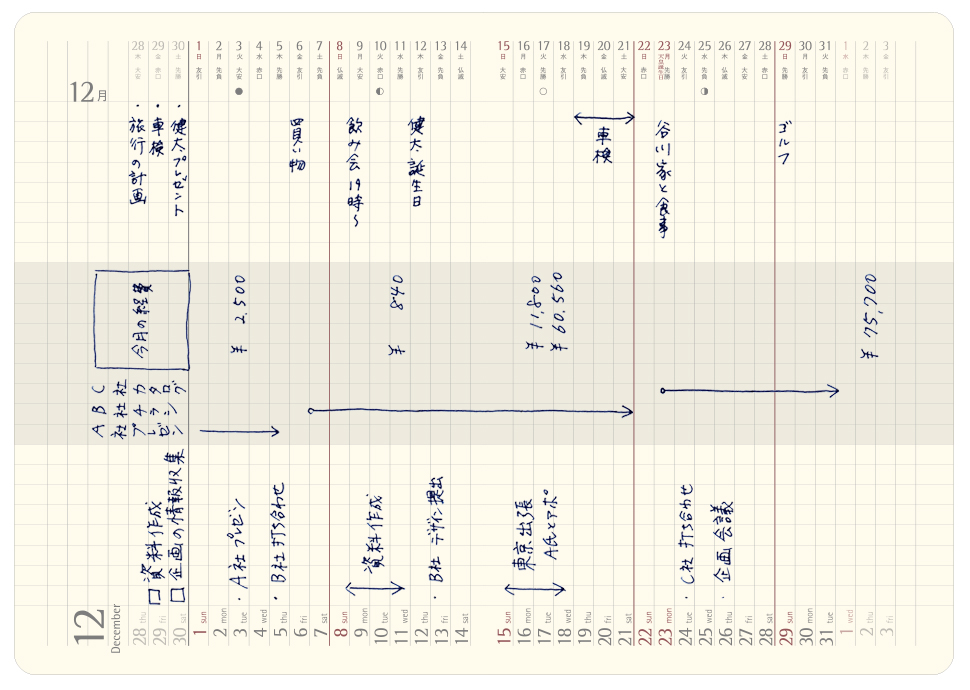 12月
28 木 大安
29 金 赤口
30 土 先勝
1 日 友引
2 月 先負
3 火 大安
4 水 赤口
5 木 先勝
6 金 友引
7 土 先負
8 日 仏滅
9 月 大安
10 火 赤口
11 水 先勝
12 木 友引
13 金 先負
14 土 仏滅
15 日 大安
16 月 赤口
17 火 先勝
18 水 友引
19 木 先負
20 金 仏滅
21 土 大安
22 日 赤口
23 月 天皇誕生日 先勝
24 火 友引
25 水 先負
26 木 仏滅
27 金 大安
28 土 赤口
29 日 先勝
30 月 友引
31 火 先負
1 水
2 木
3 金
・旅行の計画
・車検
・健太プレゼント
買い物
飲み会 19時〜
健太誕生日
車検
谷川家と食事
ゴルフ
今月の経費
¥ 2,500
¥ 840
¥ 11,800
¥ 60,560
¥ 75,700
A社プレゼン
B社チラシ
C社カタログ
□資料作成
□企画の情報収集
・A社プレゼン
・B社打ち合わせ
資料作成
・B社 デザイン提出
東京出張
A氏とアポ
・C社打ち合わせ
・企画会議
12
December
28 thu
29 fri
30 sat
1 sun
2 mon
3 tue
4 wed
5 thu
6 fri
7 sat
8 sun
9 mon
10 tue
11 wed
12 thu
13 fri
14 sat
15 sun
16 mon
17 tue
18 wed
19 thu
20 fri
21 sat
22 sun
23 mon
24 tue
25 wed
26 thu
27 fri
28 sat
29 sun
30 mon
31 tue
1 wed
2 thu
3 fri